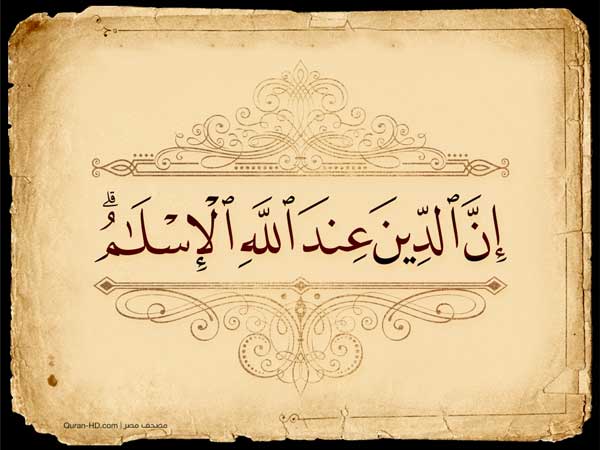 إِنَّ ٱلدِّينَ عِندَ ٱللَّهِ ٱلْإِسْلَٰمُ ۗ
Quran-HD.com | مصحف مصر